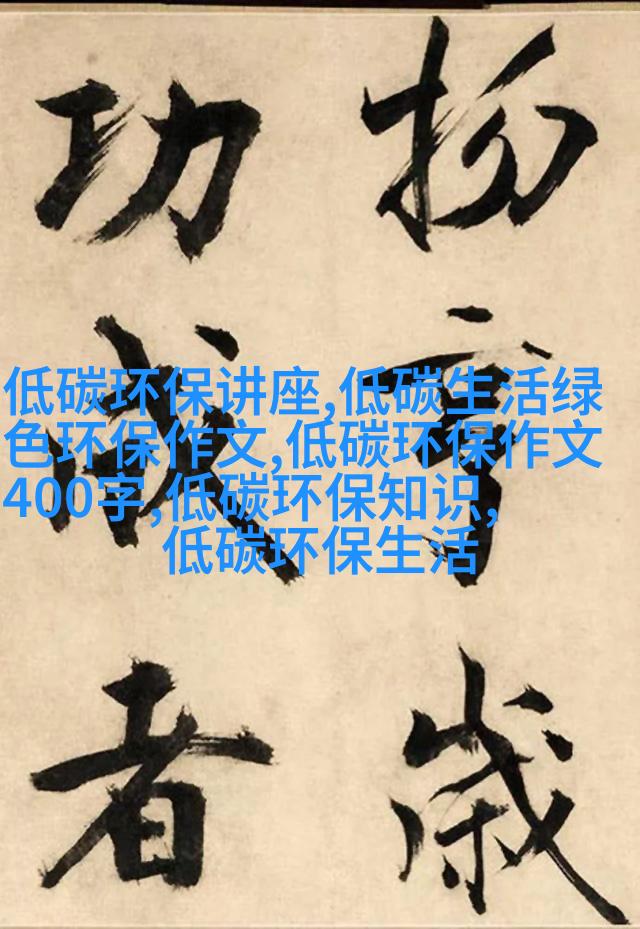 歲
功
成
者
低碳环保讲座,低碳生活绿
色环保作文,低碳环保作文
400字,低碳环保知识,
低碳环保生活